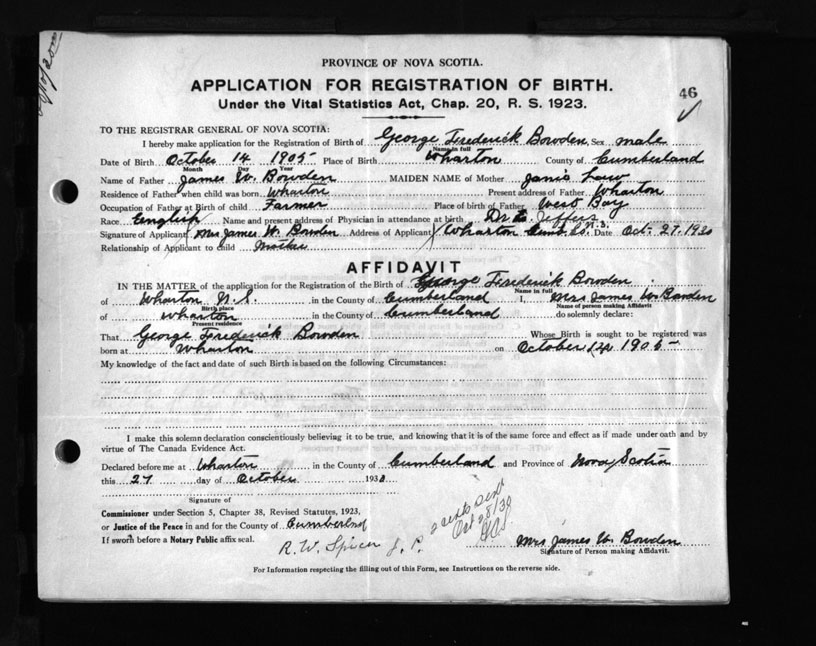 PROVINCE OF NOVA SCOTIA.
APPLICATION FOR REGISTRATION OF BIRTH.
46
Under the Vital Statistics Act, Chap. 20, R. S. 1923.
TO THE REGISTRAR GENERAL OF NOVA SCOTIA:
I hereby make application for the Registration of Birth of George Frederick Bowden Sex male
Name in full
Date of Birth October 14 1905 Place of Birth Wharton County of Cumberland
Month Day Year
Name of Father James W. Bowden MAIDEN NAME of Mother Janis
Residence of Father when child was born Wharton Present address of Father Wharton
Occupation of Father at Birth of child Farmer Place of birth of Father West Bay
Race English Name and present address of Physician in attendance at birth Dr Jeffers
Signature of Applicant Mrs James W. Bowden Address of Applicant Wharton Cumb. Co. N.S. Date Oct. 27. 1930
Relationship of Applicant to child Mother
AFFIDAVIT
IN THE MATTER of the application for the Registration of the Birth of George Frederick Bowden
Name in full
of Wharton N.S. in the County of Cumberland I, Mrs James W. Bowden
Birth place Name of person making Affidavit
of Wharton in the County of Cumberland do solemnly declare:
Present residence
That George Frederick Bowden Whose Birth is sought to be registered was
born at Wharton on October 14 1905
My knowledge of the fact and date of such Birth is based on the following Circumstances:
I make this solemn declaration conscientiously believing it to be true, and knowing that it is of the same force and effect as if made under oath and by
virtue of The Canada Evidence Act.
Declared before me at Wharton in the County of Cumberland and Province of Nova Scotia
this 27 day of October 1930
Signature of
Commissioner under Section 5, Chapter 38, Revised Statutes, 1923,
or Justice of the Peace in and for the County of Cumberland
If sworn before a Notary Public affix seal.
R. W. Spicer J. P.
Oct 28/30
Mrs James W Bowden
Signature of Person making Affidavit.
For Information respecting the filling out of this Form, see Instructions on the reverse side.